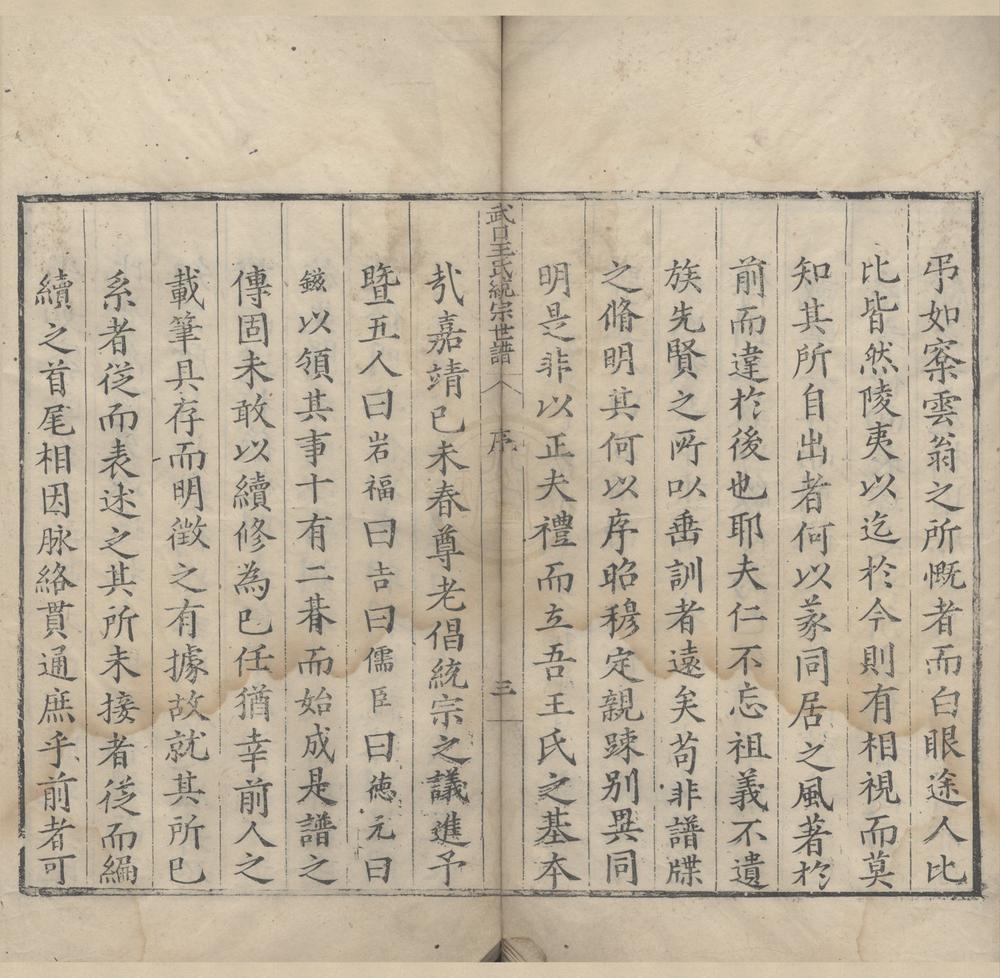 弔如寀雲翁之所慨者而白眼途人比
比皆然陵夷以迄於今則有相視而莫
知其所自出者何以篆同居之風著於
前而違於後也耶夫仁不忘祖義不遺
族先賢之所以垂訓者遠矣苟非譜牒
之脩明其何以序昭穆定親踈別異同
明是非以正夫禮而立吾王氏之基本
武口王氏統宗世譜
序
三
㢤嘉靖己未春尊老倡統宗之議進予
暨五人曰岩福曰吉曰儒臣曰德元曰
鎡以領其事十有二朞而始成是譜之
傳固未敢以續修為己任猶幸前人之
載筆具存而明徵之有據故就其所已
系者從而表述之其所未接者從而編
續之首尾相因脉絡貫通庶乎前者可